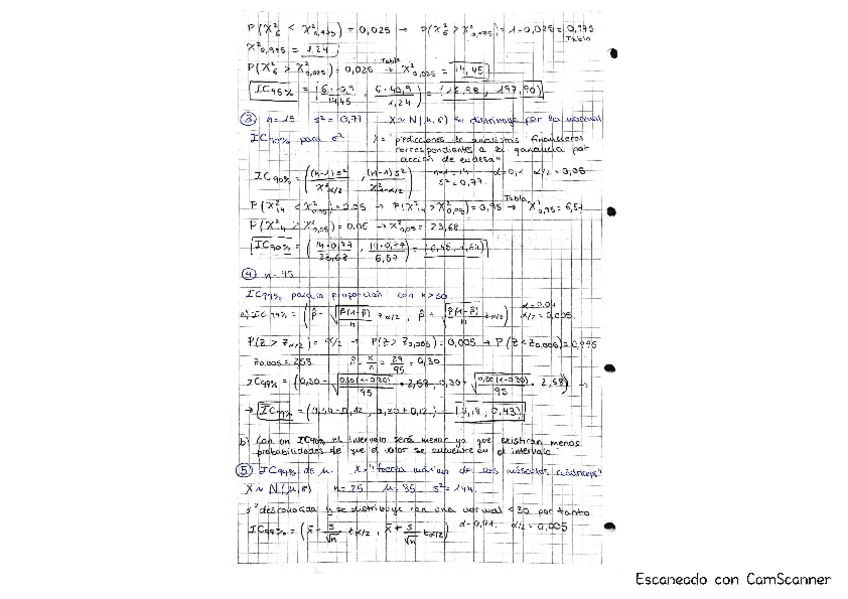 P(X²₆ < X²₀,₉₇₅) = 0,025 → P(X²₆ > X²₀,₉₇₅) = 1-0,025 = 0,975
Tabla
X²₀,₉₇₅ = 1,24
P(X²₆ > X²₀,₀₂₅) = 0,025 → Tabla X²₀,₀₂₅ = 14,45
IC95% = (6·40,9/14,45 , 6·40,9/1,24) = (16,98 , 197,90)
③ n=15 s²=0,77 X~N(μ,σ) se distribuye por la normal
IC90% para σ² X="predicciones de analistas financieros
correspondientes a la ganancia por
acción de endesa"
IC90% = ((n-1)s²/X²α/2 , (n-1)s²/X²1-α/2) n-1=14 α=0,1 α/2=0,05
s²=0,77
P(X²₁₄ < X²₀,₉₅) = 0,05 → P(X²₁₄ > X²₀,₉₅) = 0,95 → Tabla X²₀,₉₅ = 6,57
P(X²₁₄ > X²₀,₀₅) = 0,05 → X²₀,₀₅ = 23,68
IC90% = (14·0,77/23,68 , 14·0,77/6,57) =
④ n=95
IC99% para la proporcion con n>30
a) IC99% = (p̂ - √(p̂(1-p̂)/n) zα/2 , p̂ + √(p̂(1-p̂)/n) zα/2) α=0,01
α/2=0,005
P(Z > Zα/2) = α/2 → P(Z > Z₀,₀₀₅) = 0,005 → P(Z < Z₀,₀₀₅) = 0,995
Z₀,₀₀₅ = 2,58 p̂ = x/n = 29/95 = 0,30
IC99% = (0,30 - √(0,30(1-0,30)/95) · 2,58, 0,30 + √(0,30(1-0,30)/95) · 2,58) →
→ IC99% = (0,30-0,12 , 0,30+0,12) = (0,18 , 0,43)
b) Con un IC90% el intervalo será menor ya que existiran menos
probabilidades de que el valor se encuentre en el intervalo
⑤ IC99% de μ. X="fuerza máxima de los músculos cuádriceps"
X~N(μ,σ) n=25 μ=85 s²=144
s² desconocida y se distribuye con una normal <30 por tanto
IC99% = (x̄ - s/√n tα/2 , x̄ + s/√n tα/2) α=0,01 α/2=0,005
Escaneado con CamScanner